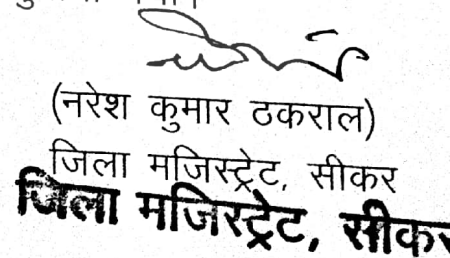 (नरेश कुमार ठकराल)
जिला मजिस्ट्रेट, सीकर
जिला मजिस्ट्रेट, सीकर